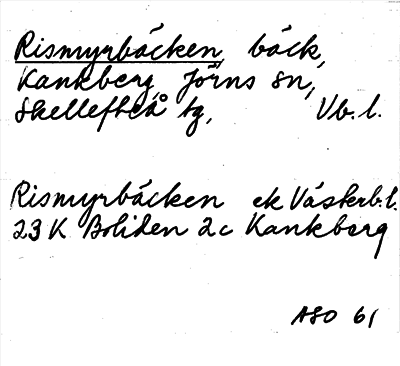 Rismyrbäcken, bäck,
Kankberg, Jörns sn,
Skellefteå tg, Vb. l.
Rismyrbäcken ek Västerb. l.
23 K Boliden 2c Kankberg
ASO 61